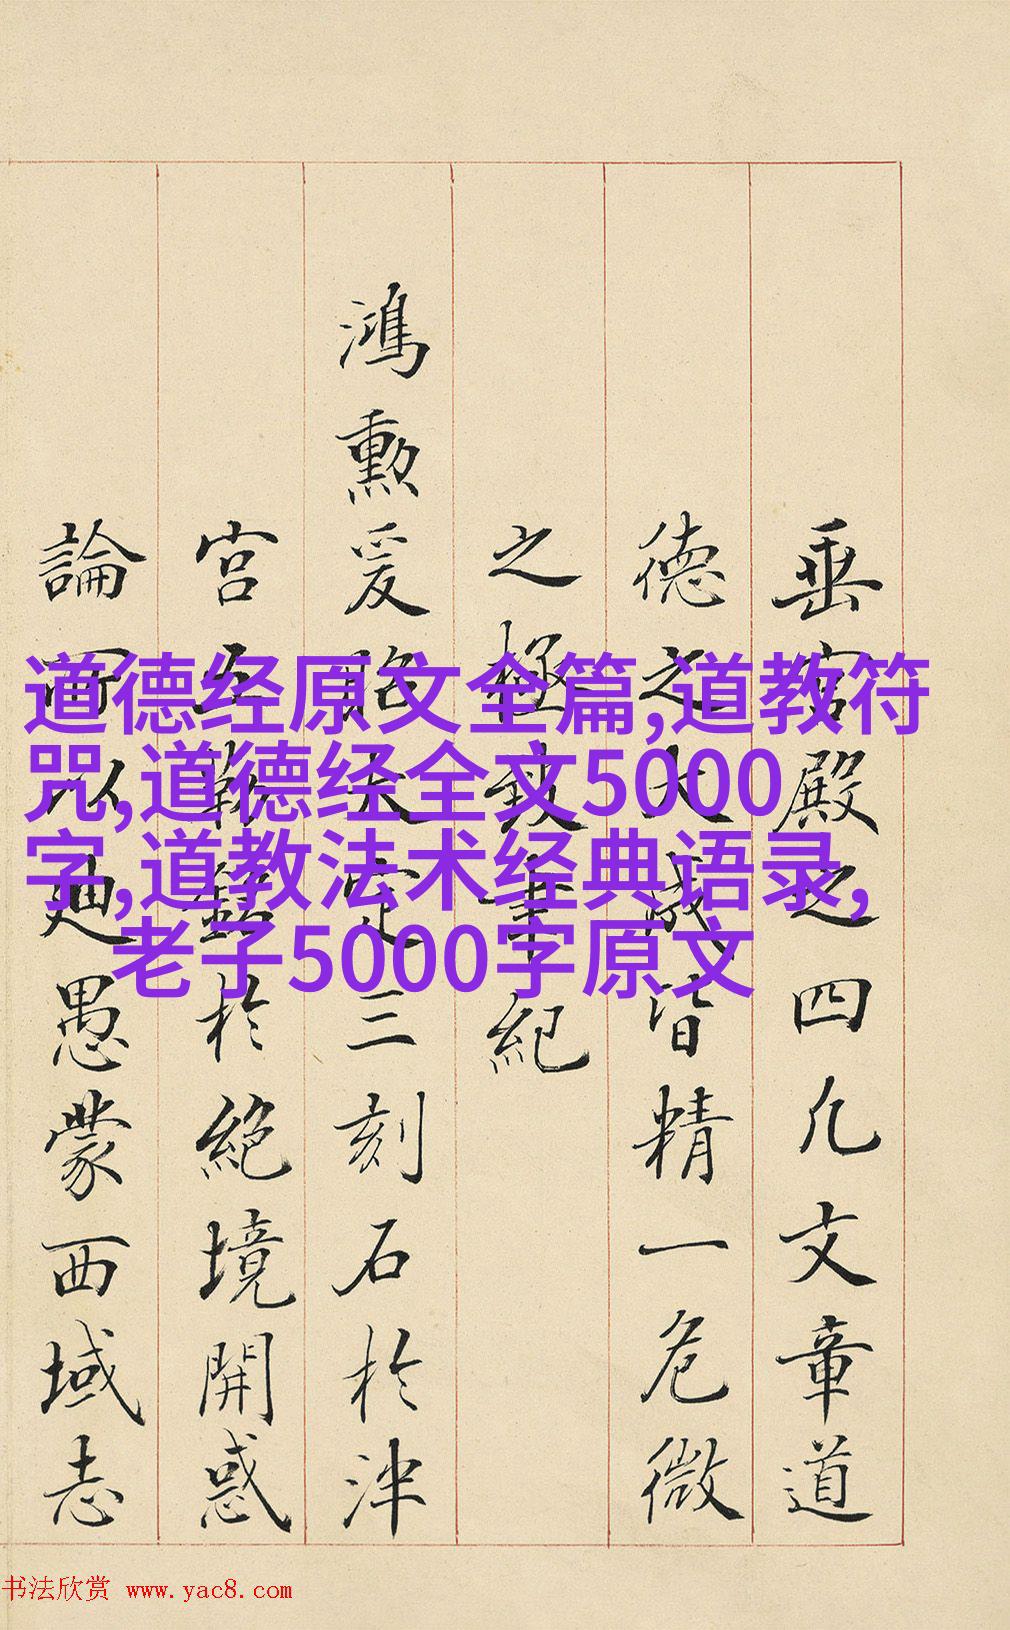 垂宮殿之四几文章道
德之大咸皆精一危微
之極致紀
鴻勲爰大定三刻石於津
宮於絶境開惑
論以廸愚蒙西域志
道德经原文全篇,道教符
咒,道德经全文5000
字,道教法术经典语录,
老子5000字原文
书法欣赏 www.yac8.com